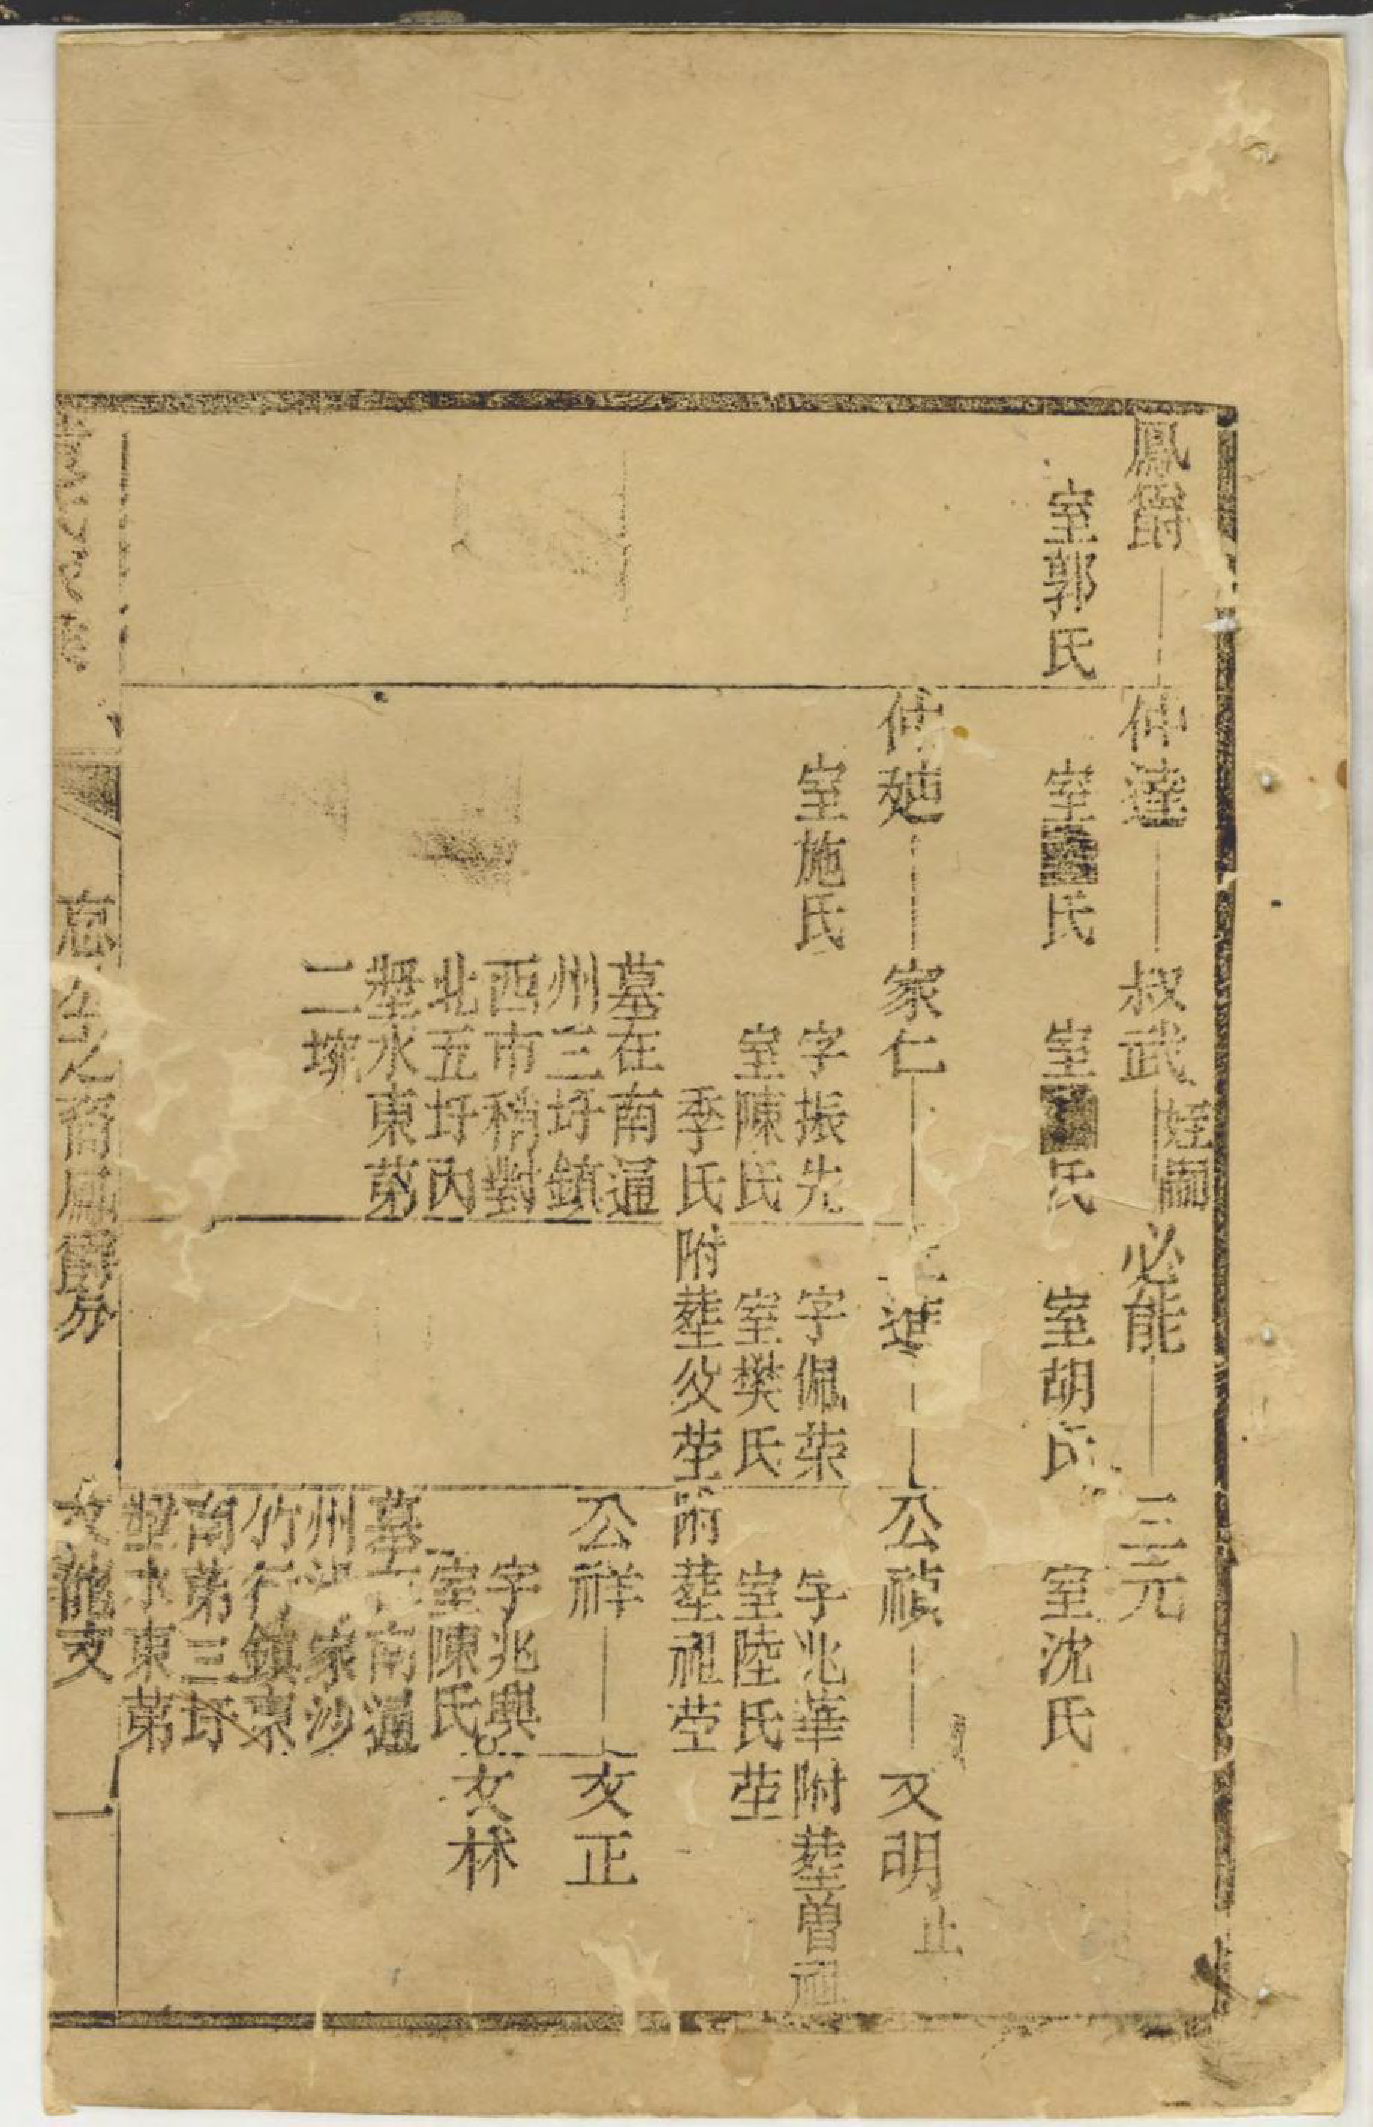 鳳爵 仲達 叔武 姪嗣 必能 三元
室郭氏 室 氏 室 氏 室胡氏 室沈氏
仲廸 家仁 進 公禎 文明 止
室施氏 字振先 字佩荣 字兆華 附塟曽祖
室陳氏 室樊氏 室陸氏 茔
季氏 附塟父茔 附塟祖茔
墓在南通 公祥 文正
州三圩鎮
西市稍對 字兆興 文林
北五圩內 室陳氏
塱水東第 墓 南通
二㘯 州 家沙
竹行鎮東
南第三圩
塱水東第
之裔鳳爵分 文龍支 一